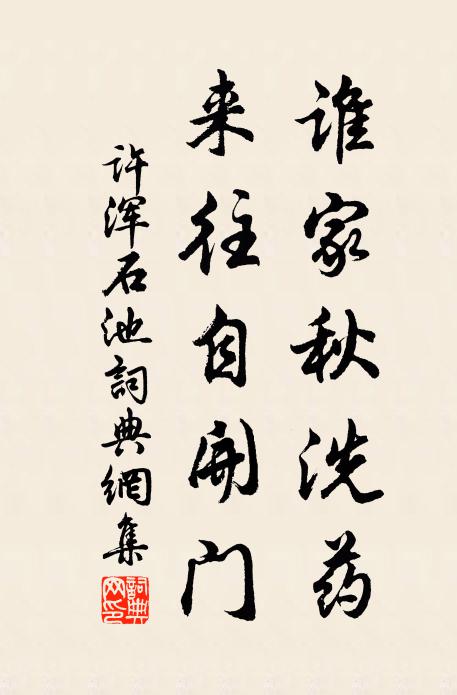 谁家秋洗药
来往自开门
许浑石池詞典網集
詞典网印